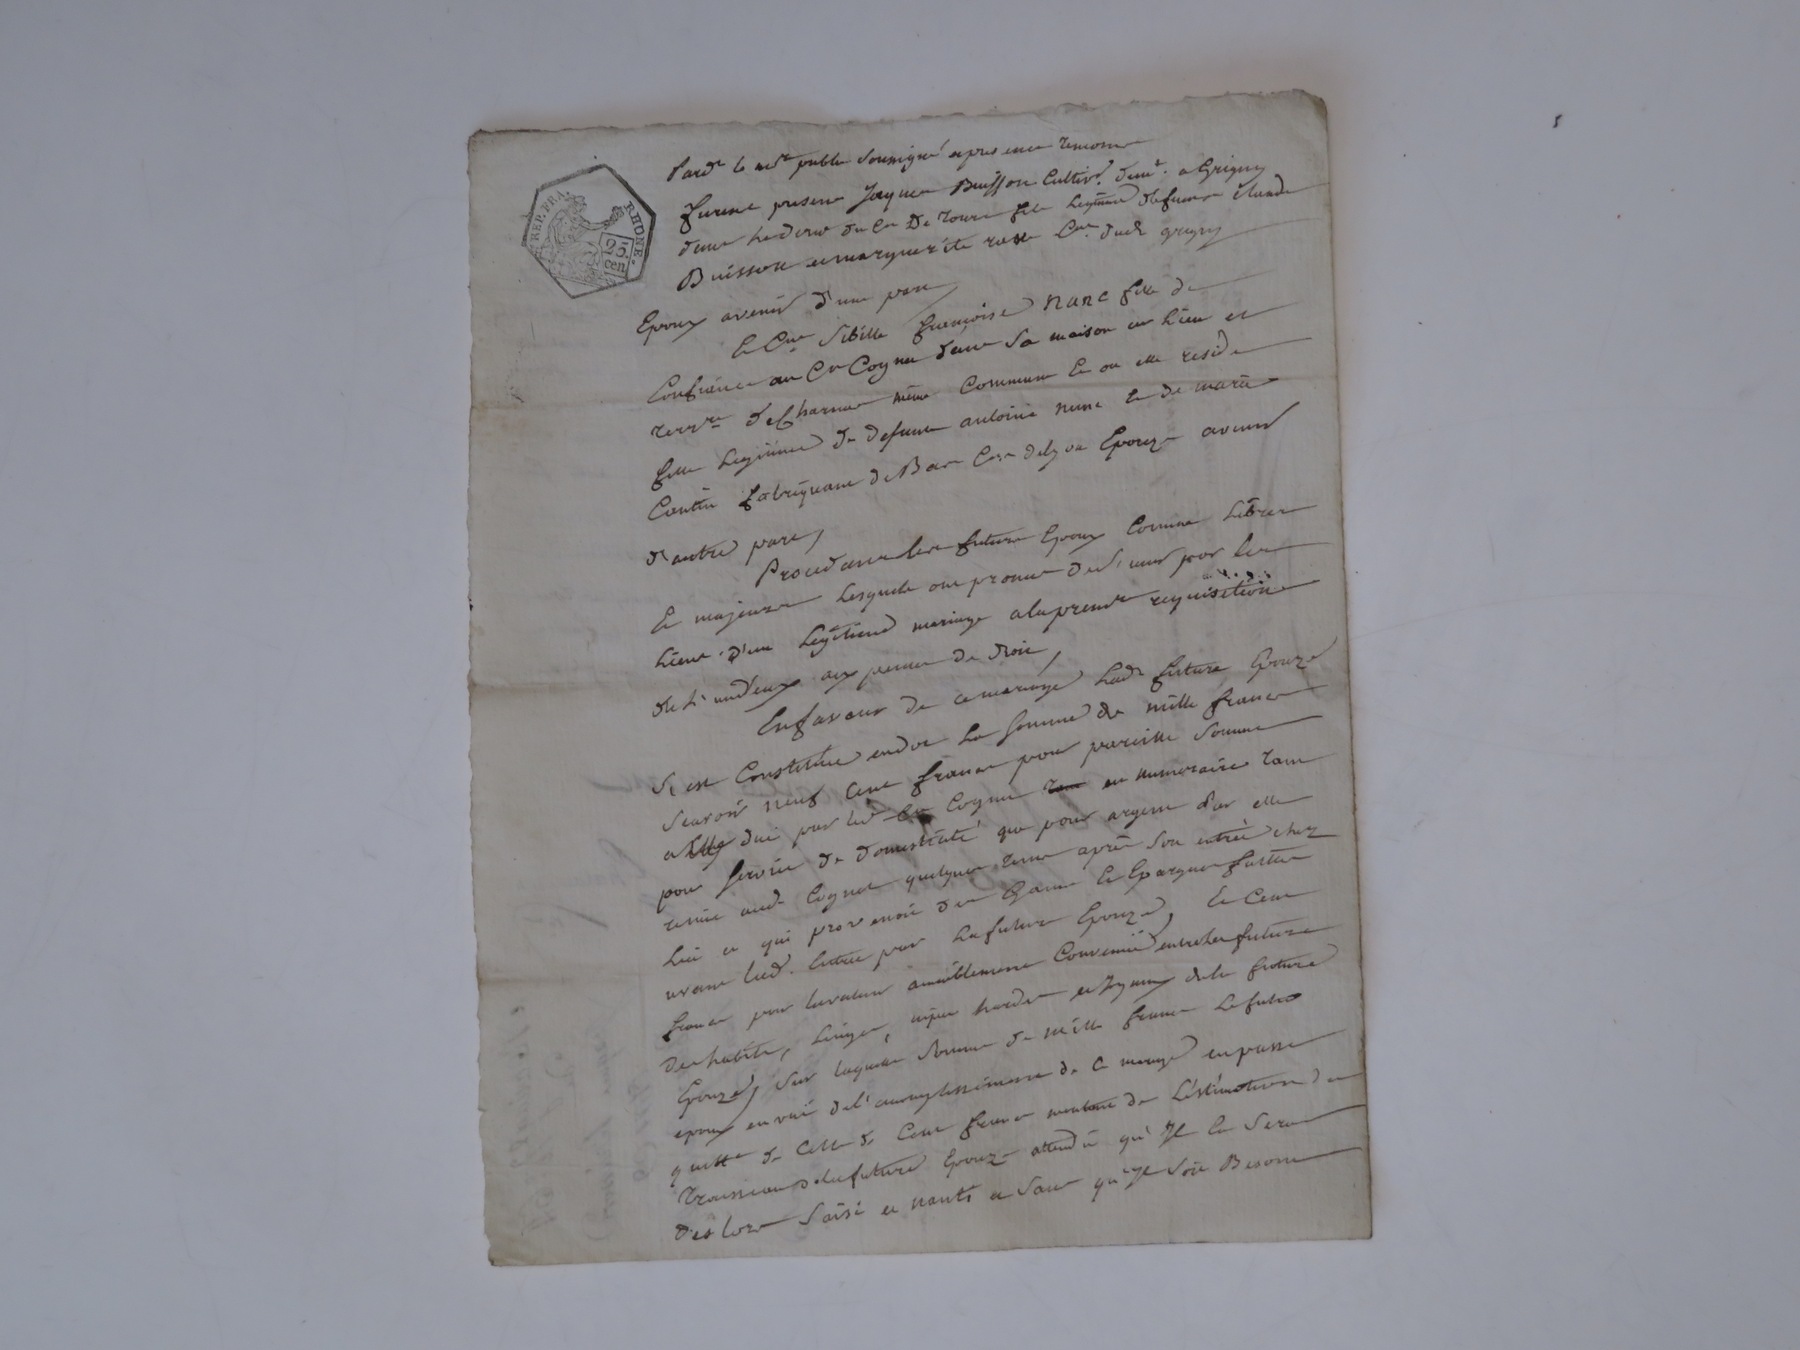 REP. FRA. RHONE.
25 cen
Pard.t le no.re public soussigné et presence temoins
Furent present Jacques Buisson Cultiv.r dem.t a Grigny
dune hederie du Cen De fils legitime defunt Claude
Buisson et marguerite Cne dudt grigny
Epoux avenir d'une part,
Et Cne Sibille françoise nanc fille de
Confiance au Cn Cognet dans sa maison en lieu et
terr.re de Charnas même Commune et ou elle reside
fille legitime de defunt antoine nanc et de marie
Contin fabriquant de Bas Epouze avenir
d'autre part,
Procedant les futurs Epoux Comme libres
Et majeurs Lesquels ont promis de s'unir par les
liens d'un legitime mariage a la premre requisition
de l'un d'eux aux peines de droit,
En faveur de ce mariage ladt future Epouze
s'est Constituée en dot la somme de mille francs
scavoir neuf Cent francs pour pareille somme
a elle due par led Cn Cognet en numeraire tant
pour service de domesticité que pour argent par elle
remis audt Cognet quelques tems après son entrée chez
lui et qui provenoit des Gains Et Epargnes faittes
avant lad. entrée par la future Epouze, Et Cent
francs pour la valeur amiablement Convenue entre les futurs
des habits, linges, nipes hardes et joyaux de la future
Epouze, sur laquelle somme de mille francs le futur
epoux en vue de l'accomplissement de ce mariage en passe
quitte de Celle de Cent francs montant de l'estimation du
Trousseau de la future Epouze attendu qu'Il en sera
dès lors saisi et nanti et sans qu'Il soit Besoin